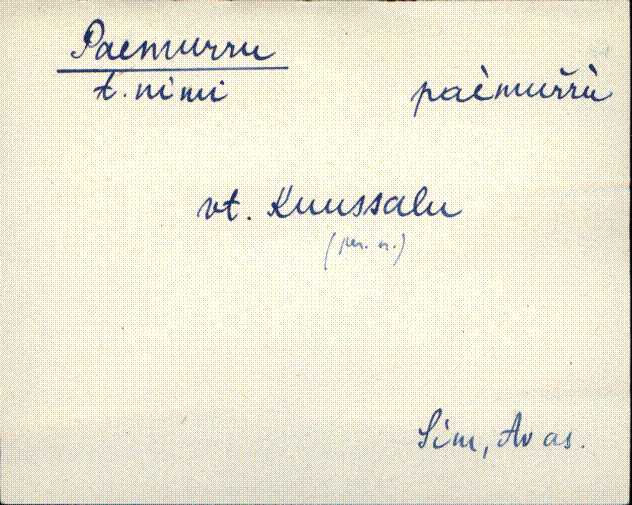 Paemurru
t. nimi paèmuřřù
vt. Kuussalu
(per. n.)
Sim, Av as.